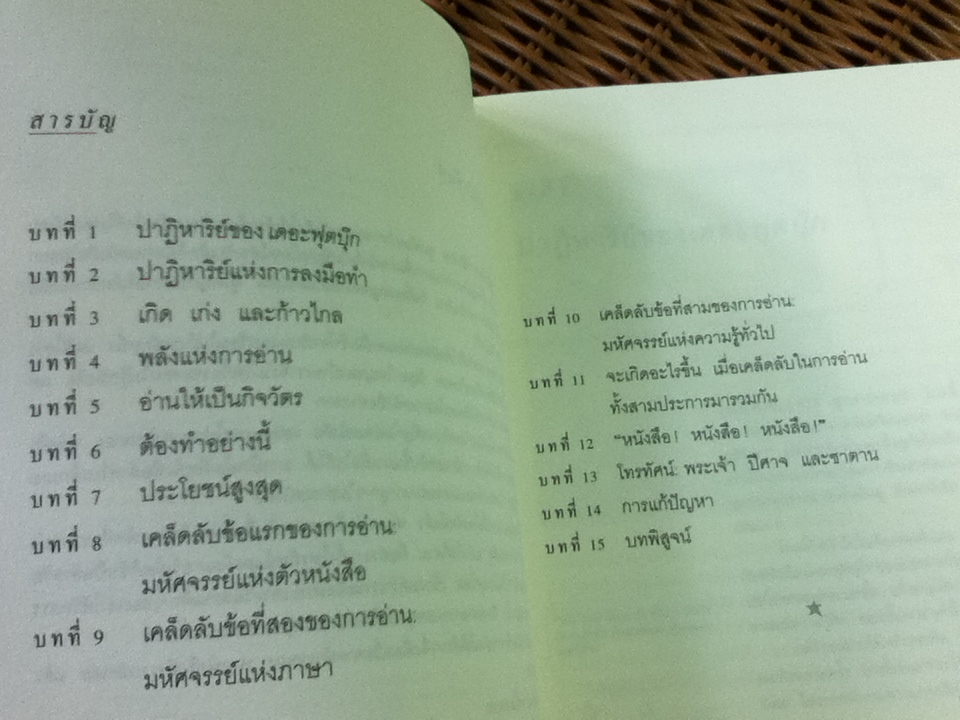 สารบัญ
บทที่ 1 ปาฏิหาริย์ของ เดอะฟุตบุ๊ก
บทที่ 2 ปาฏิหาริย์แห่งการลงมือทำ
บทที่ 3 เกิด เก่ง และก้าวไกล
บทที่ 4 พลังแห่งการอ่าน
บทที่ 5 อ่านให้เป็นกิจวัตร
บทที่ 6 ต้องทำอย่างนี้
บทที่ 7 ประโยชน์สูงสุด
บทที่ 8 เคล็ดลับข้อแรกของการอ่าน:
มหัศจรรย์แห่งตัวหนังสือ
บทที่ 9 เคล็ดลับข้อที่สองของการอ่าน:
มหัศจรรย์แห่งภาษา
บทที่ 10 เคล็ดลับข้อที่สามของการอ่าน:
มหัศจรรย์แห่งความรู้ทั่วไป
บทที่ 11 จะเกิดอะไรขึ้น เมื่อเคล็ดลับในการอ่าน
ทั้งสามประการมารวมกัน
บทที่ 12 "หนังสือ! หนังสือ! หนังสือ!"
บทที่ 13 โทรทัศน์: พระเจ้า ปีศาจ และซาตาน
บทที่ 14 การแก้ปัญหา
บทที่ 15 บทพิสูจน์